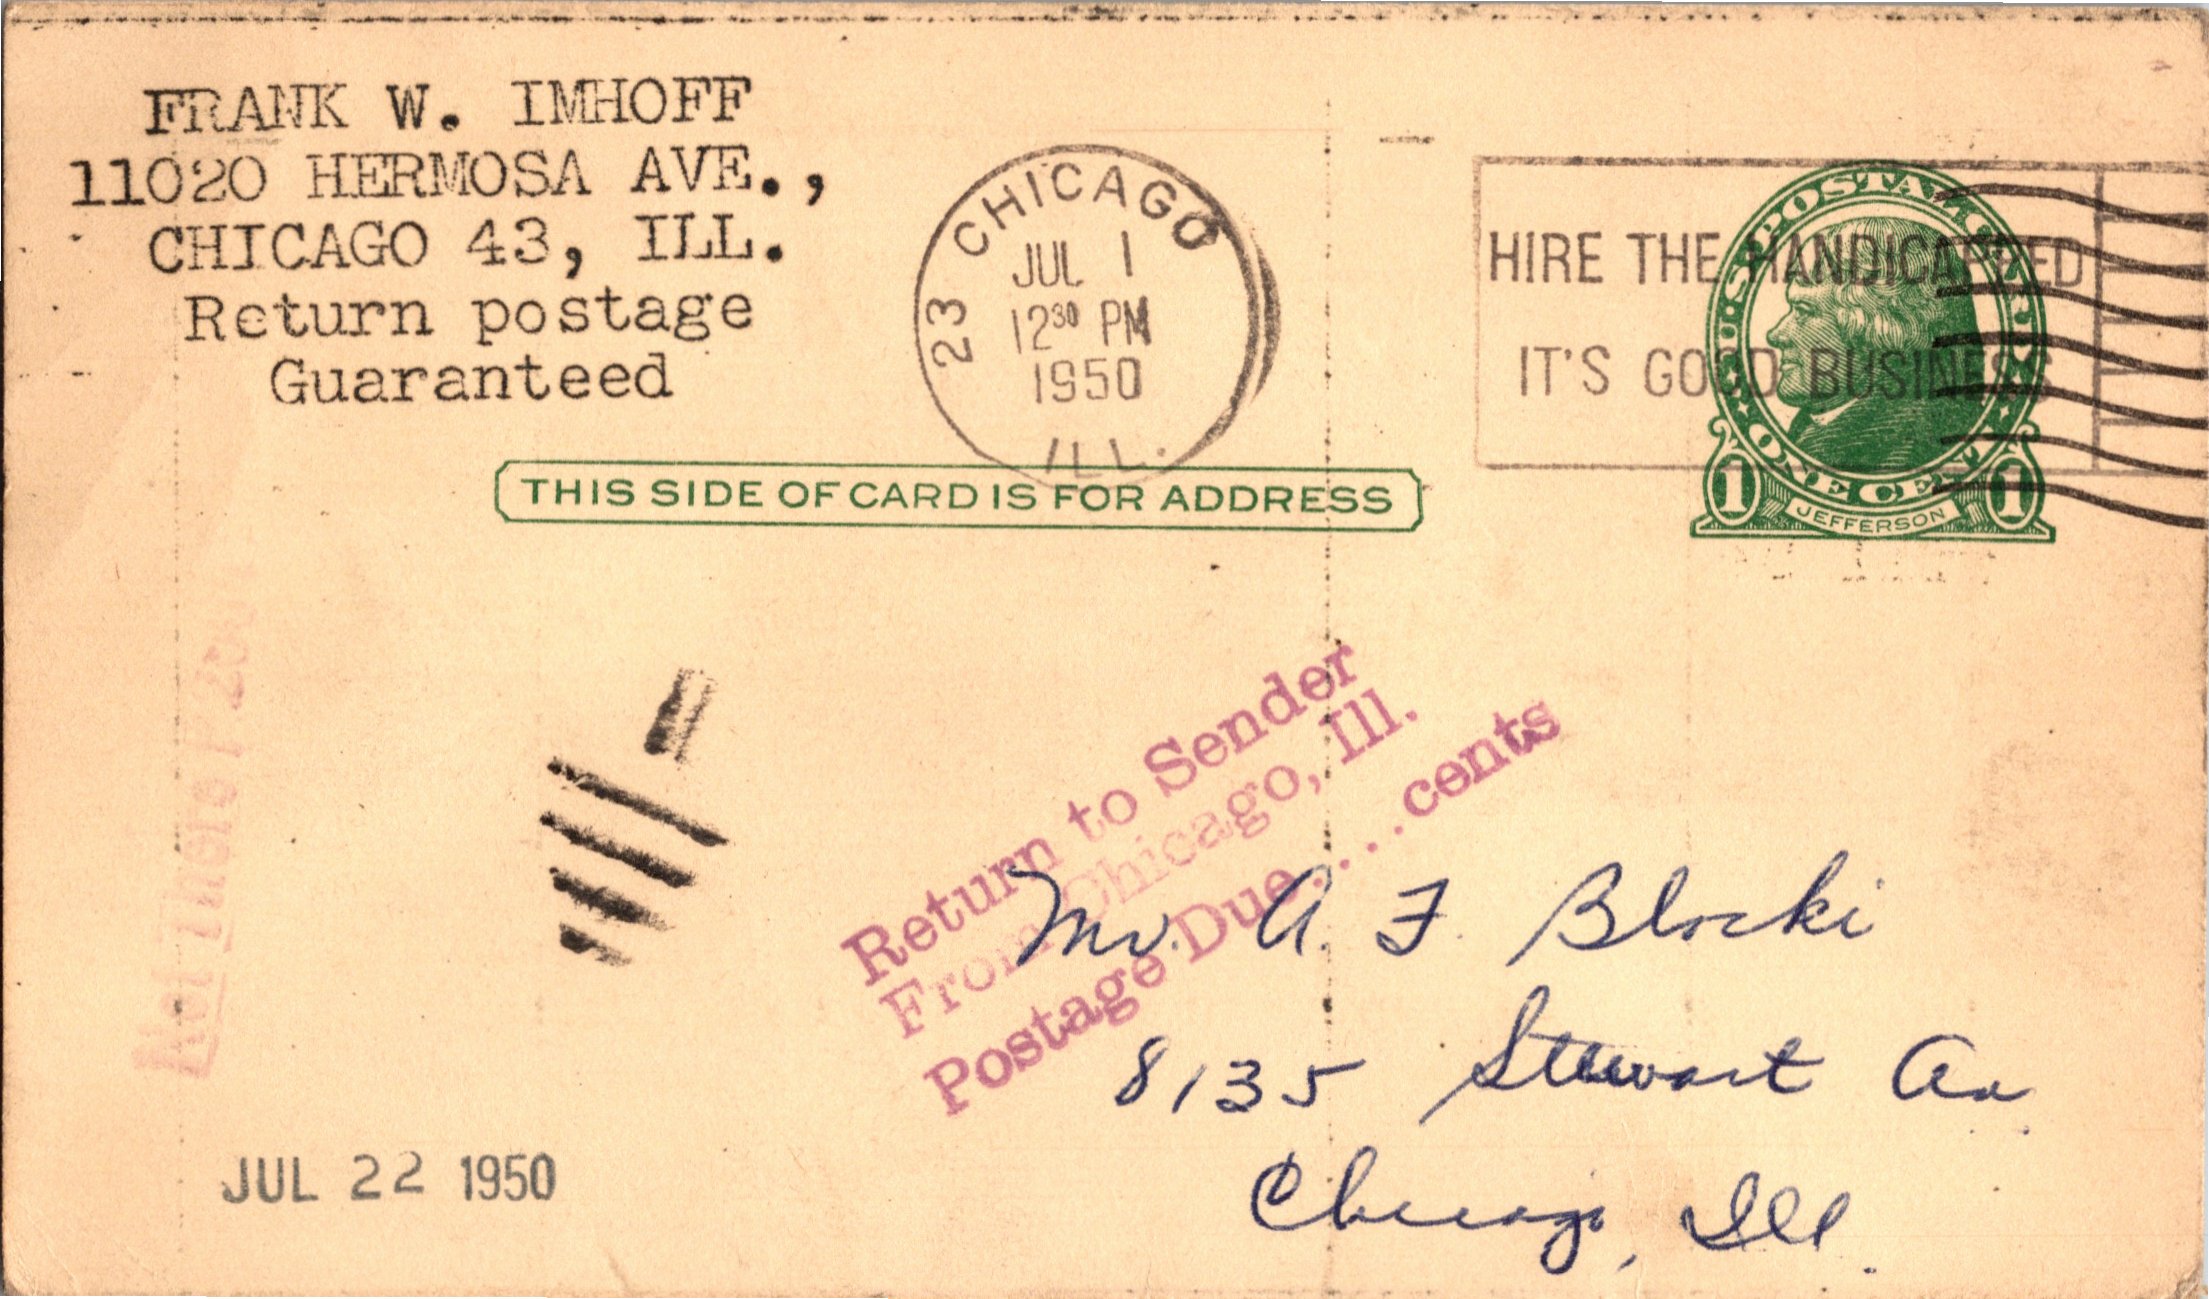 FRANK W. IMHOFF
11020 HERMOSA AVE.,
CHICAGO 43, ILL.
Return postage
Guaranteed
23 CHICAGO
JUL 1
12 30 PM
1950
ILL.
HIRE THE HANDICAPPED
IT'S GOOD BUSINESS
U·S·POSTAGE
ONE CENT
1 JEFFERSON 1
THIS SIDE OF CARD IS FOR ADDRESS
Return to Sender
From Chicago, Ill.
Postage Due....cents
Not There
Mr. A. F. Blocki
8135 Stewart Av
Chicago, Ill.
JUL 22 1950